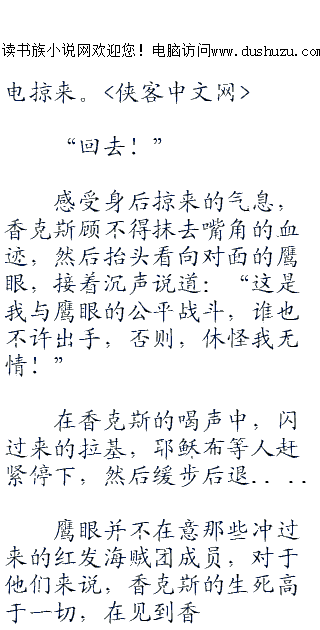 读书族小说网欢迎您！电脑访问www.dushuzu.com
电掠来。<侠客中文网>
“回去！”
感受身后掠来的气息，
香克斯顾不得抹去嘴角的血
迹，然后抬头看向对面的鹰
眼，接着沉声说道：“这是
我与鹰眼的公平战斗，谁也
不许出手，否则，休怪我无
情！”
在香克斯的喝声中，闪
过来的拉基，耶稣布等人赶
紧停下，然后缓步后退．．．．
鹰眼并不在意那些冲过
来的红发海贼团成员，对于
他们来说，香克斯的生死高
于一切，在见到香